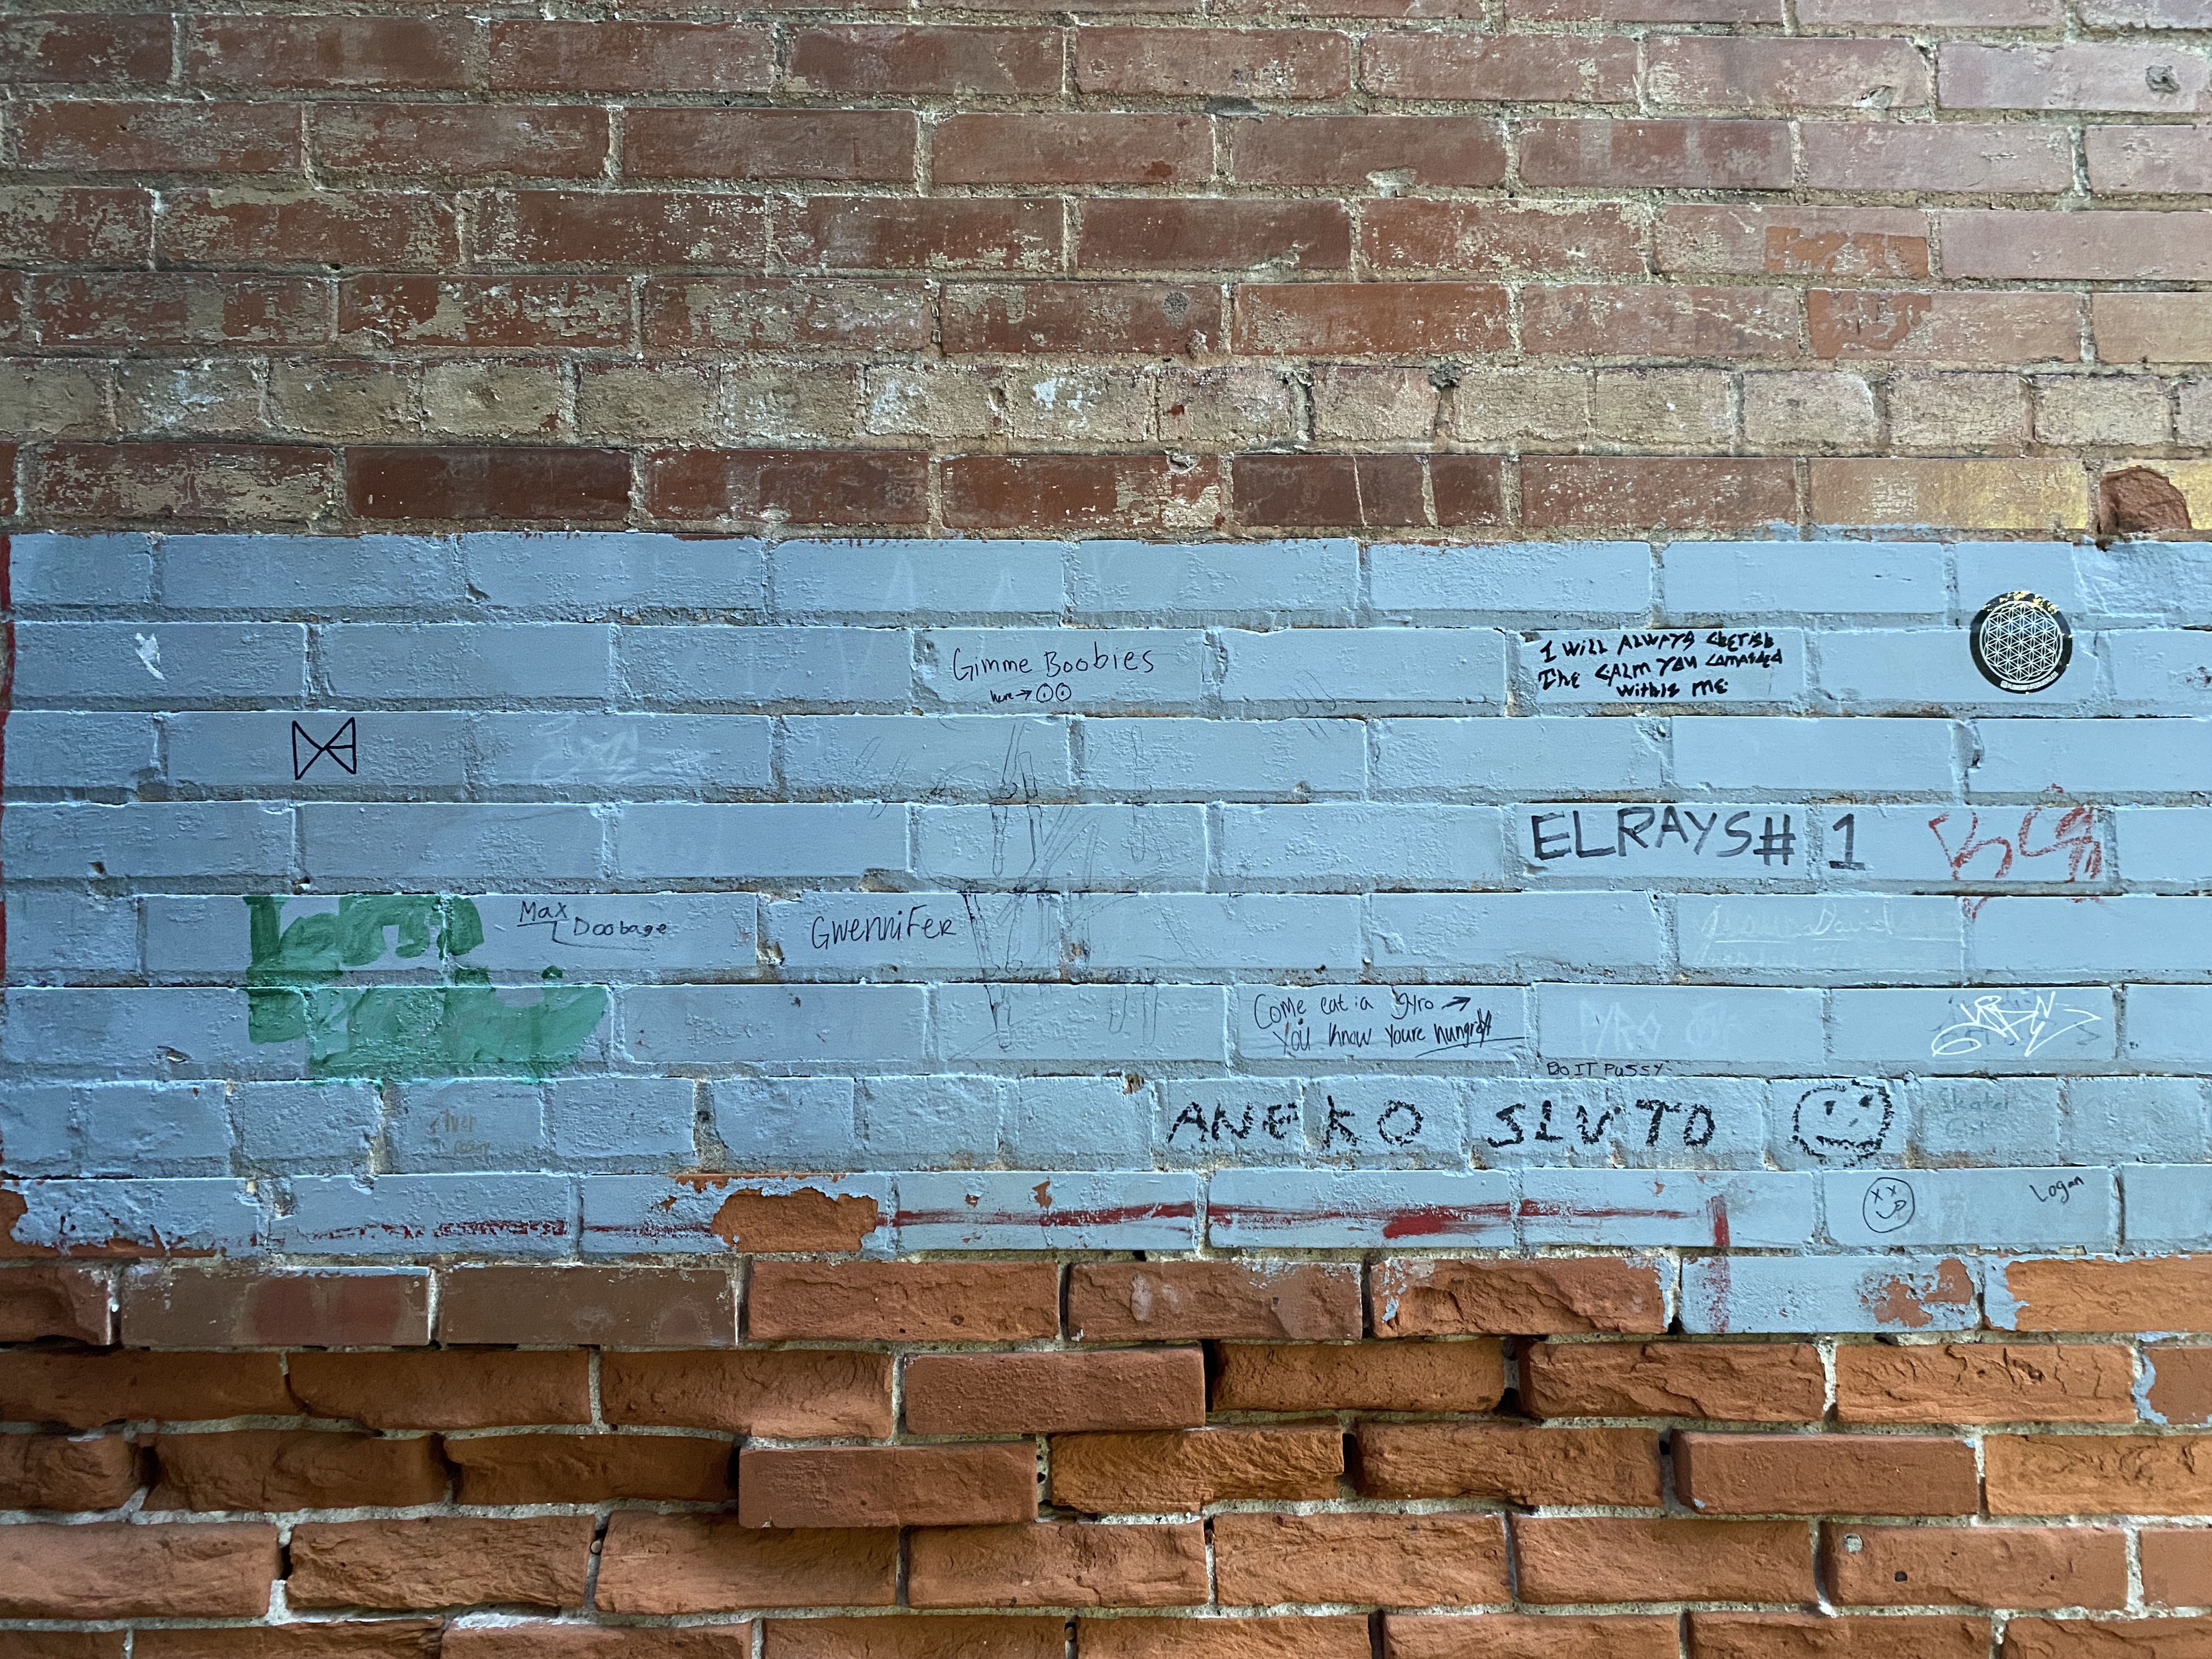 Gimme Boobies
here→
I WILL ALWAYS CHERISH
THE CALM YOU COMANDED
WITHIN ME
ELRAYS# 1
Max
Doobage
GWENNIFER
Come eat a gyro →
You know youre hungry
PYRO
DO IT PUSSY
ANEKO SLUTO
Skater
Logan